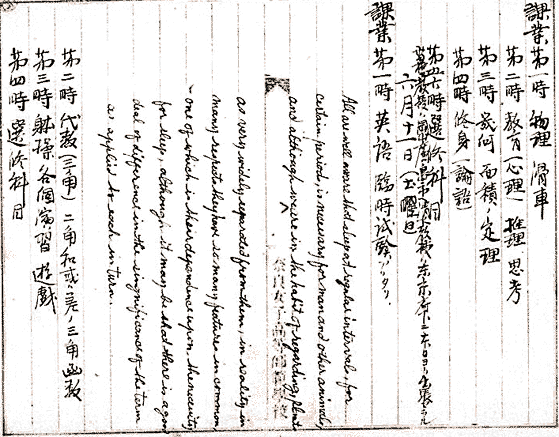 課業 第一時 物理 滑車
第二時 教育(心理) 推理 思考
第三時 幾何 面積ノ定理
第四時 修身(論語)
第五六時 選修科目
六月十一日(土曜日)
課業 第一時 英語 臨時試験アリタリ
All are well aware that sleep at regular intervals for
certain period, is necessary for man and other animals,
and although we are in the habit of regarding plants
as very widely separated from them, in reality in
many respects they have so many feature in common,
one of which is their dependence upon the necessity
for sleep, although it may be that there is a good
deal of difference in the singnificance of the term
as applied to each in turn.
第二時 代数(三角) 二角和或差ノ三角函数
第三時 体操 各個演習 遊戯
第四時 選修科目